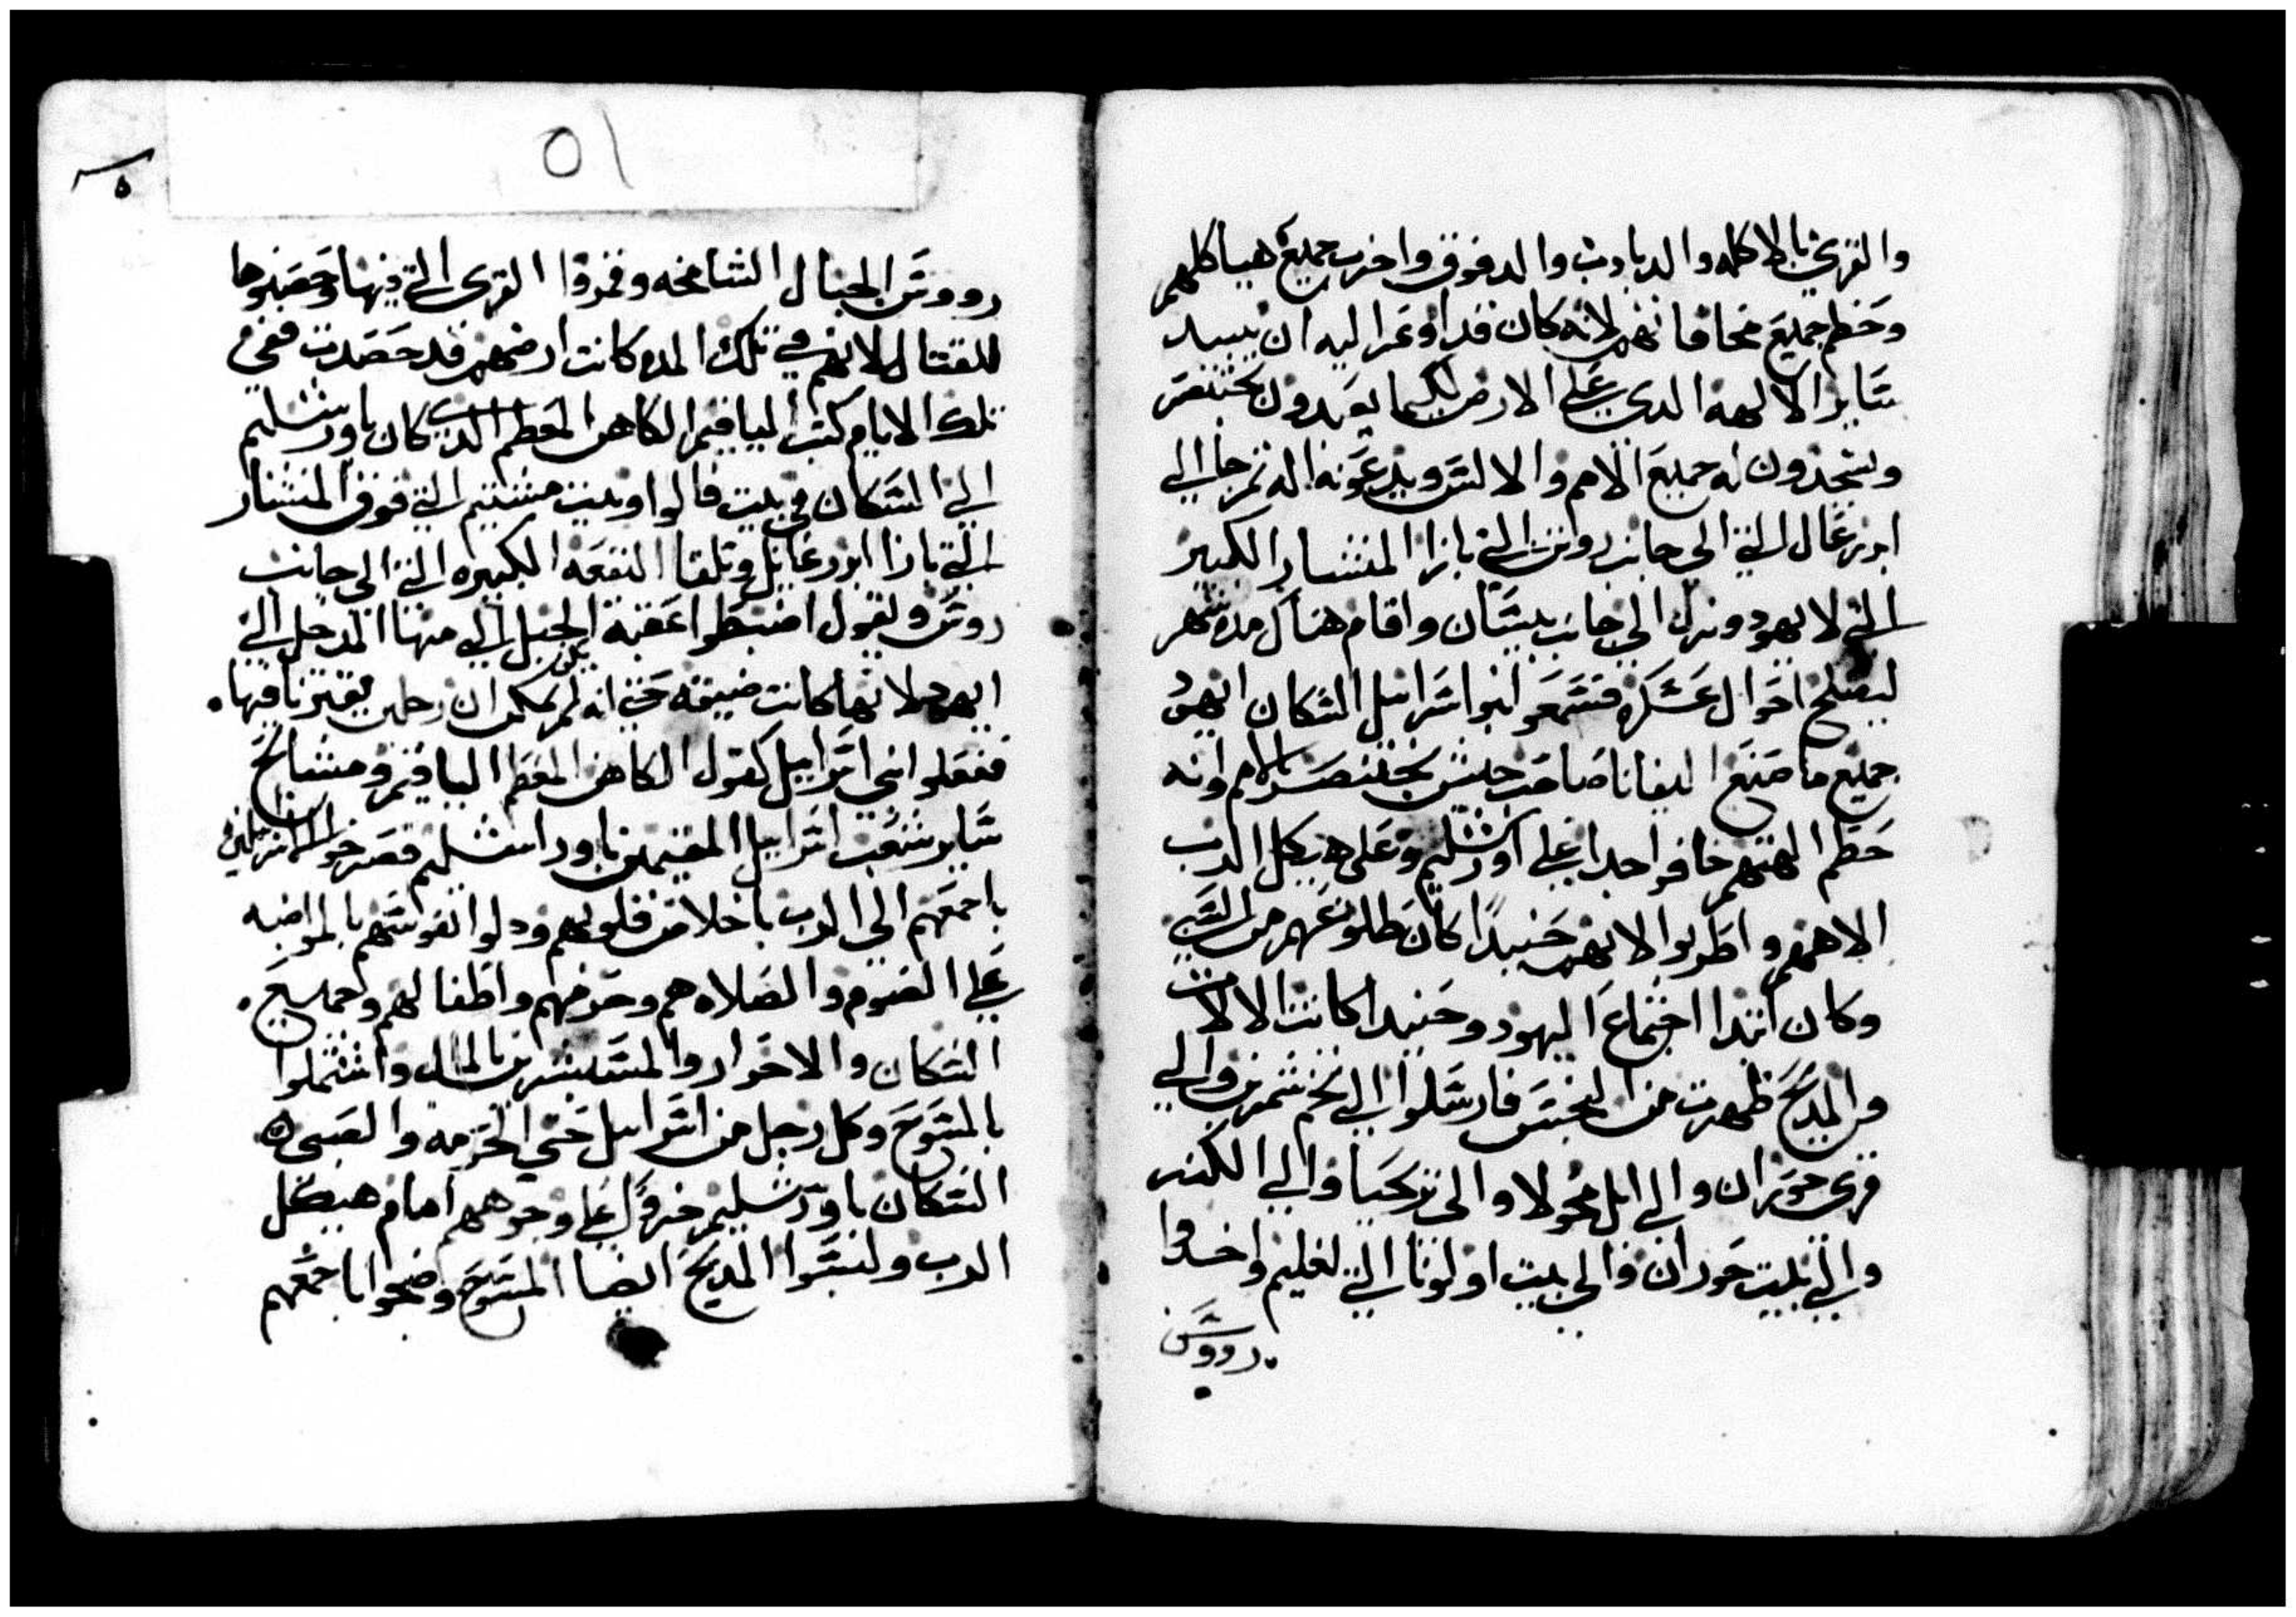 والقري بالاكله والدبادب والدفوف واخرب جميع هياكلهم
وحطم جميع مخافاتهم لانه كان قد اوعز اليه ان يبيد
ساير الالهه الدي علي الارض لكيما يعبدون بختنصر
ويسجدون له جميع الامم والالسن ويدعونه اله ثم جا الي
ازرعال التي الي جانب روثن التي بازا المنشار الكبير
التي لا يهود ونزل الي جانب بيسان واقام هناك مده شهر
ليصلح احوال عسكره فسمعوا بنوا اسرايل السكان اليهود
جميع ما صنع اليفانا صاحب جيش بختنصر بالامم وانه
حطم الهتهم خافوا جدا علي اورشليم وعلي هيكل الرب
الاههم واطربوا لانهم حنيدا كان طلوعهم من السبي
وكان ابتدا اجتماع اليهود وحنيدا كانت الالات
والمدبح ظهرت من النجس فارسلوا الي تخم شمرين والي
قري حوران والي ابل محولا والي يركحيا والي الكبر
والي بيت حوران والي بيت اولونا التي لغليم واخدوا
رووس
٥١
٥
رووس الجبال الشامخه وفرقوا القري التي فيها وحصنوها
للقتال لانهم في تلك المده كانت ارضهم قد حصدت ففي
تلك الايام كتب الياقيم الكاهن المعظم الدي كان باورشليم
الي السكان في بيت فالوا وبيت مشتيم التي فوق المنشار
التي بازا ازرعايل وتلقا البقعه الكبيره التي الي جانب
روثن ويقول اضبطوا عقبة الجبل التي منها المدخل الي
اليهود لانها كانت ضيقه حتي انه لم يكن يمكن ان رجلين يقترنا فيها
ففعلوا بني اسرايل كقول الكاهن المعظم الياقيم ومشايخ
ساير شعب اسرايل المقيمين باوراشليم فصرخوا الاسرايلين
باجمعهم الي الرب باخلاص قلوبهم ودلوا نفوسهم بالمواضبه
علي الصوم والصلاه هم وحرمهم واطفالهم وجميع
السكان والاحوار والمستبشرين بالمال واشتملوا
بالمسوح وكل رجل من اسرايل حتي الحرمه والصبي
السكان باورشليم خروا علي وجوههم امام هيكل
الرب ولبسوا المدبح ايضا المسوح وضجوا باجمعهم